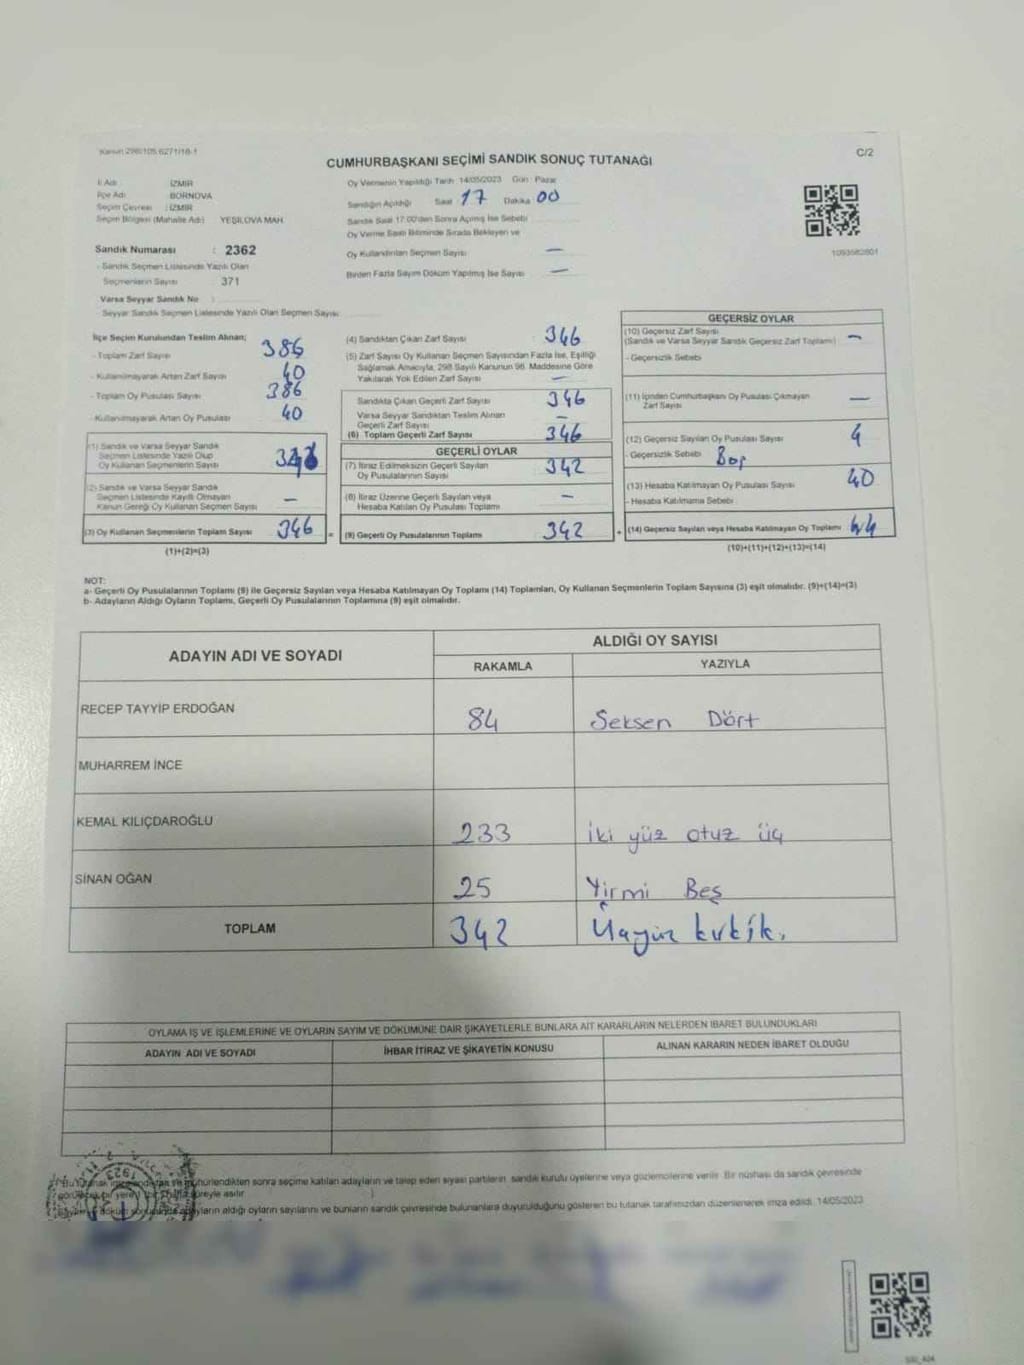 Kanun 298/105 6271/18-1
CUMHURBAŞKANI SEÇİMİ SANDIK SONUÇ TUTANAĞI
C/2
İl Adı : İZMİR
İlçe Adı : BORNOVA
Seçim Çevresi : İZMİR
Seçim Bölgesi (Mahalle Adı) : YEŞİLOVA MAH.
Sandık Numarası : 2362
- Sandık Seçmen Listesinde Yazılı Olan
Seçmenlerin Sayısı : 371
Varsa Seyyar Sandık No :
- Seyyar Sandık Seçmen Listesinde Yazılı Olan Seçmen Sayısı:
Oy Vermenin Yapıldığı Tarih 14/05/2023 Gün : Pazar
Sandığın Açıldığı Saat 17 Dakika 00
Sandık Saat 17:00'den Sonra Açılmış İse Sebebi :
Oy Verme Saati Bitiminde Sırada Bekleyen ve
Oy Kullandırılan Seçmen Sayısı —
Birden Fazla Sayım Döküm Yapılmış İse Sayısı —
1093582801
İlçe Seçim Kurulundan Teslim Alınan;
- Toplam Zarf Sayısı 386
- Kullanılmayarak Artan Zarf Sayısı 40
- Toplam Oy Pusulası Sayısı 386
- Kullanılmayarak Artan Oy Pusulası 40
(1) Sandık ve Varsa Seyyar Sandık
Seçmen Listesinde Yazılı Olup
Oy Kullanan Seçmenlerin Sayısı
(2) Sandık ve Varsa Seyyar Sandık
Seçmen Listesinde Kayıtlı Olmayan
Kanun Gereği Oy Kullanan Seçmen Sayısı —
(3) Oy Kullanan Seçmenlerin Toplam Sayısı 346 =
(1)+(2)=(3)
(4) Sandıktan Çıkan Zarf Sayısı : 346
(5) Zarf Sayısı Oy Kullanan Seçmen Sayısından Fazla İse, Eşitliği
Sağlamak Amacıyla, 298 Sayılı Kanunun 98. Maddesine Göre
Yakılarak Yok Edilen Zarf Sayısı —
Sandıkta Çıkan Geçerli Zarf Sayısı 346
Varsa Seyyar Sandıktan Teslim Alınan
Geçerli Zarf Sayısı —
(6) Toplam Geçerli Zarf Sayısı 346
GEÇERLİ OYLAR
(7) İtiraz Edilmeksizin Geçerli Sayılan
Oy Pusulalarının Sayısı 342
(8) İtiraz Üzerine Geçerli Sayılan veya
Hesaba Katılan Oy Pusulası Toplamı —
(9) Geçerli Oy Pusulalarının Toplamı 342 +
GEÇERSİZ OYLAR
(10) Geçersiz Zarf Sayısı
(Sandık ve Varsa Seyyar Sandık Geçersiz Zarf Toplamı) —
- Geçersizlik Sebebi
(11) İçinden Cumhurbaşkanı Oy Pusulası Çıkmayan
Zarf Sayısı —
(12) Geçersiz Sayılan Oy Pusulası Sayısı 4
- Geçersizlik Sebebi Boş
(13) Hesaba Katılmayan Oy Pusulası Sayısı 40
- Hesaba Katılmama Sebebi :
(14) Geçersiz Sayılan veya Hesaba Katılmayan Oy Toplamı 44
(10)+(11)+(12)+(13)=(14)
NOT:
a- Geçerli Oy Pusulalarının Toplamı (9) ile Geçersiz Sayılan veya Hesaba Katılmayan Oy Toplamı (14) Toplamları, Oy Kullanan Seçmenlerin Toplam Sayısına (3) eşit olmalıdır. (9)+(14)=(3)
b- Adayların Aldığı Oyların Toplamı, Geçerli Oy Pusulalarının Toplamına (9) eşit olmalıdır.
ADAYIN ADI VE SOYADI ALDIĞI OY SAYISI
RAKAMLA YAZIYLA
RECEP TAYYİP ERDOĞAN 84 Seksen Dört
MUHARREM İNCE
KEMAL KILIÇDAROĞLU 233 İki yüz otuz üç
SİNAN OĞAN 25 Yirmi Beş
TOPLAM 342
OYLAMA İŞ VE İŞLEMLERİNE VE OYLARIN SAYIM VE DÖKÜMÜNE DAİR ŞİKAYETLERLE BUNLARA AİT KARARLARIN NELERDEN İBARET BULUNDUKLARI
ADAYIN ADI VE SOYADI İHBAR İTİRAZ VE ŞİKAYETİN KONUSU ALINAN KARARIN NEDEN İBARET OLDUĞU
mühürlendikten sonra seçime katılan adayların ve talep eden siyasi partilerin sandık kurulu üyelerine veya gözlemcilerine verilir. Bir nüshası da sandık çevresinde
asılır.
aldığı oyların sayılarını ve bunların sandık çevresinde bulunanlara duyurulduğunu gösteren bu tutanak tarafımızdan düzenlenerek imza edildi. 14/05/2023
1923